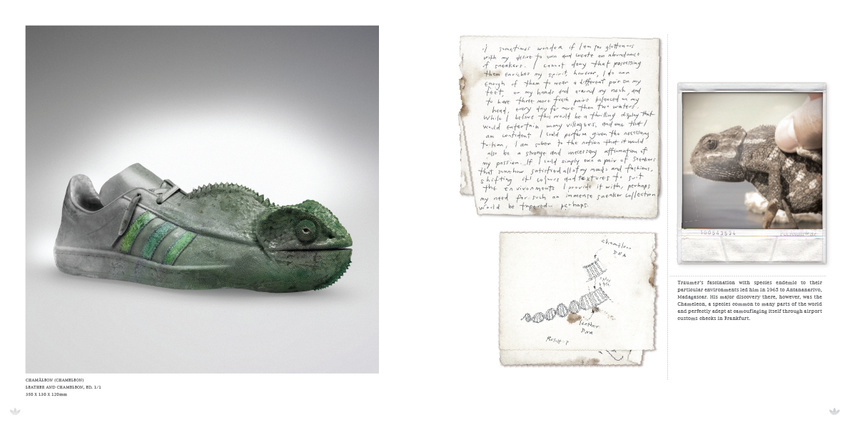 CHAMÄLEON (CHAMELEON)
LEATHER AND CHAMELEON, ED. 1/1
300 X 130 X 120mm
I sometimes wonder if I am too gluttonous
with my desire to own and create an abundance
of sneakers. I cannot deny that possessing
them enriches my spirit, however, I do own
enough of them to wear a different pair on my
feet, on my hands and around my neck, and
to have three more fresh pairs balanced on my
head, every day for more than two winters.
While I believe this would be a thrilling display that
would entertain many villagers, and one that I
am confident I could perform given the necessary
tuition, I am sober to the notion that it would
also be a strange and unnecessary affirmation of
my passion. If I could simply own a pair of sneakers
that somehow satisfied all of my needs and fashions,
shifting it's colours and textures to suit
the environments I provide it with, perhaps
my need for such an immense sneaker collection
would be perhaps.
Chameleon
DNA
Leather
DNA
Result
Träumer's fascination with species endemic to their
particular environments led him in 1963 to Antananarivo,
Madagascar. His major discovery there, however, was the
Chameleon, a species common to many parts of the world
and perfectly adept at camouflaging itself through airport
customs checks in Frankfurt.